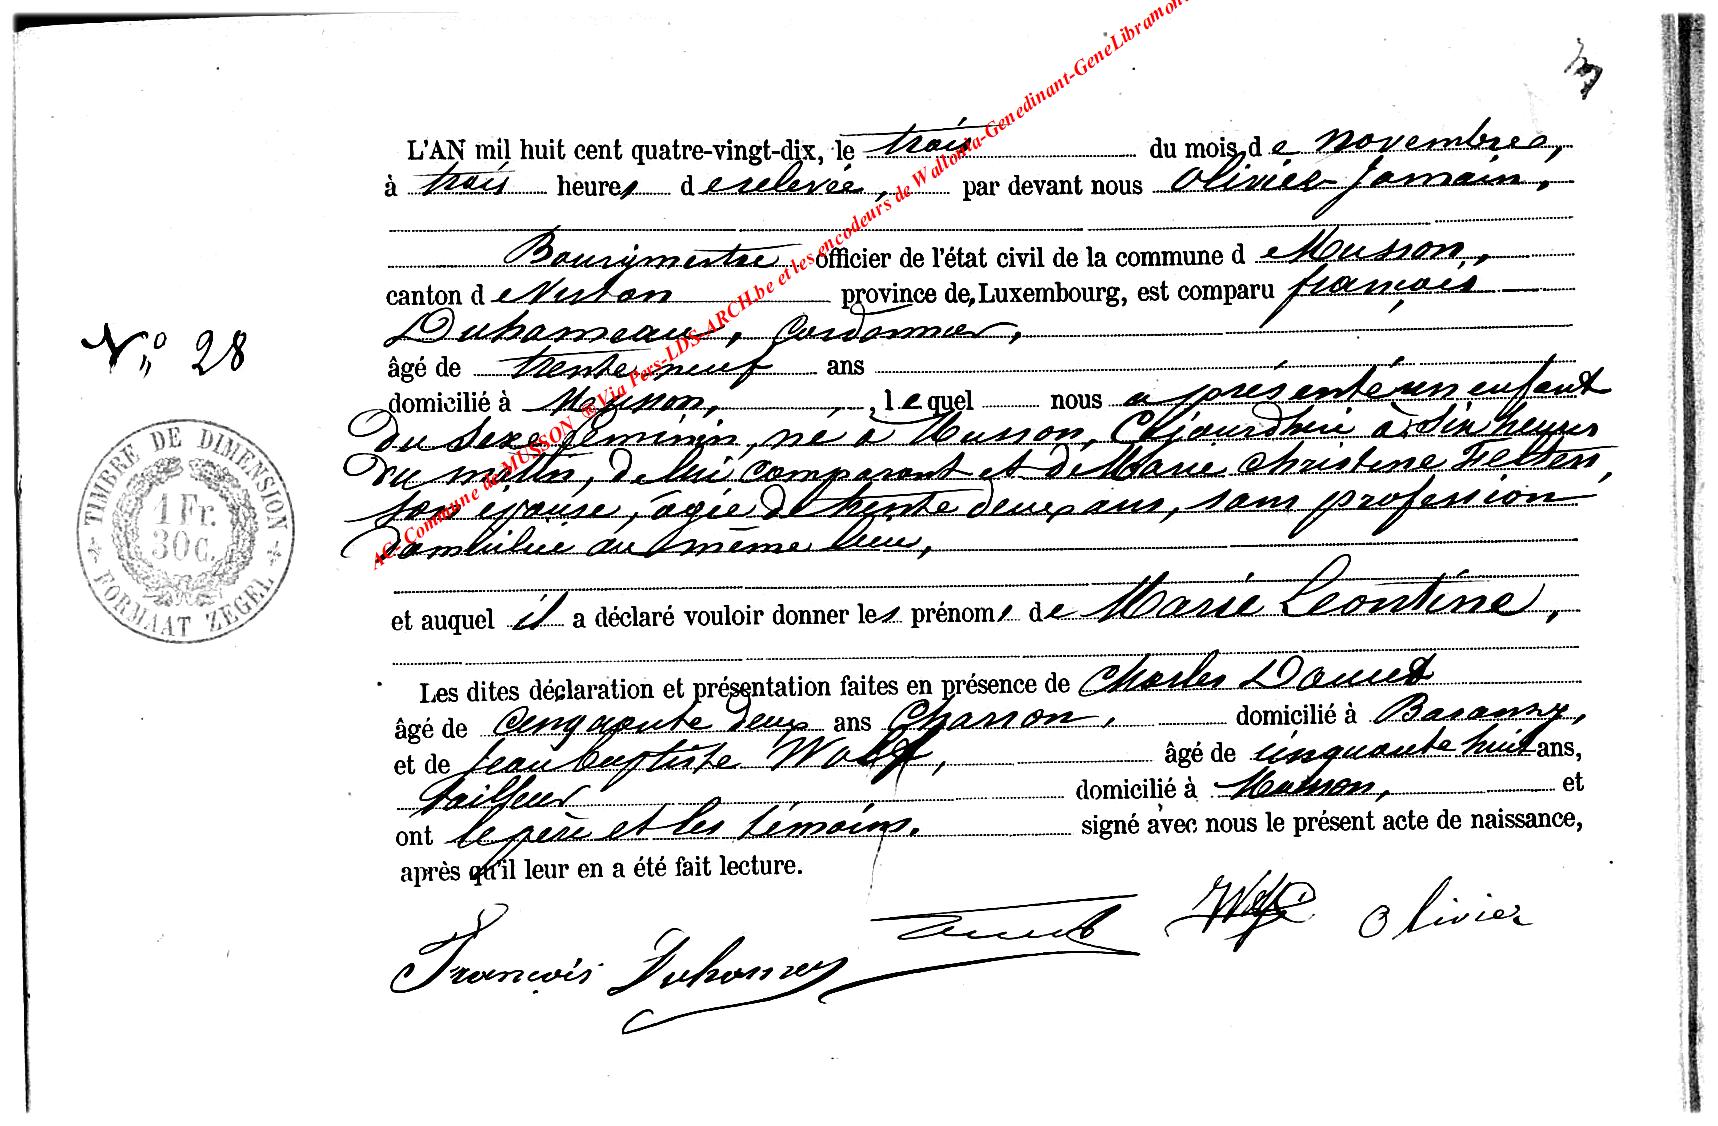 L'AN mil huit cent quatre-vingt-dix, le trois du mois de novembre,
à trois heures de relevée, par devant nous Olivier Jamain,
Bourgmestre officier de l'état civil de la commune de Musson,
canton de Virton province de Luxembourg, est comparu françois
Duhameau, Cordonnier,
âgé de trente neuf ans
domicilié à Musson, lequel nous a présenté un enfant
du sexe féminin, né à Musson, Cejourdhui à six heures
du matin, de lui comparant et de Marie Christine Felten,
son épouse, âgée de trente deux ans, sans profession
domiciliée au même lieu,
et auquel il a déclaré vouloir donner les prénoms de Marie Leontine,
Les dites déclaration et présentation faites en présence de Charles
âgé de cinquante deux ans Charron, domicilié à Baranzy,
et de Jean baptiste Wolff, âgé de cinquante huit ans,
tailleur domicilié à Musson, et
ont le père et les témoins. signé avec nous le présent acte de naissance,
après qu'il leur en a été fait lecture.
François Olivier
N° 28
TIMBRE DE DIMENSION
1 Fr.
30 C.
FORMAAT ZEGEL
AC- Commune de MUSSON ®Via Pers-LDS-ARCH.be et les encodeurs de Wallonia-Genedinant-GeneLibramon